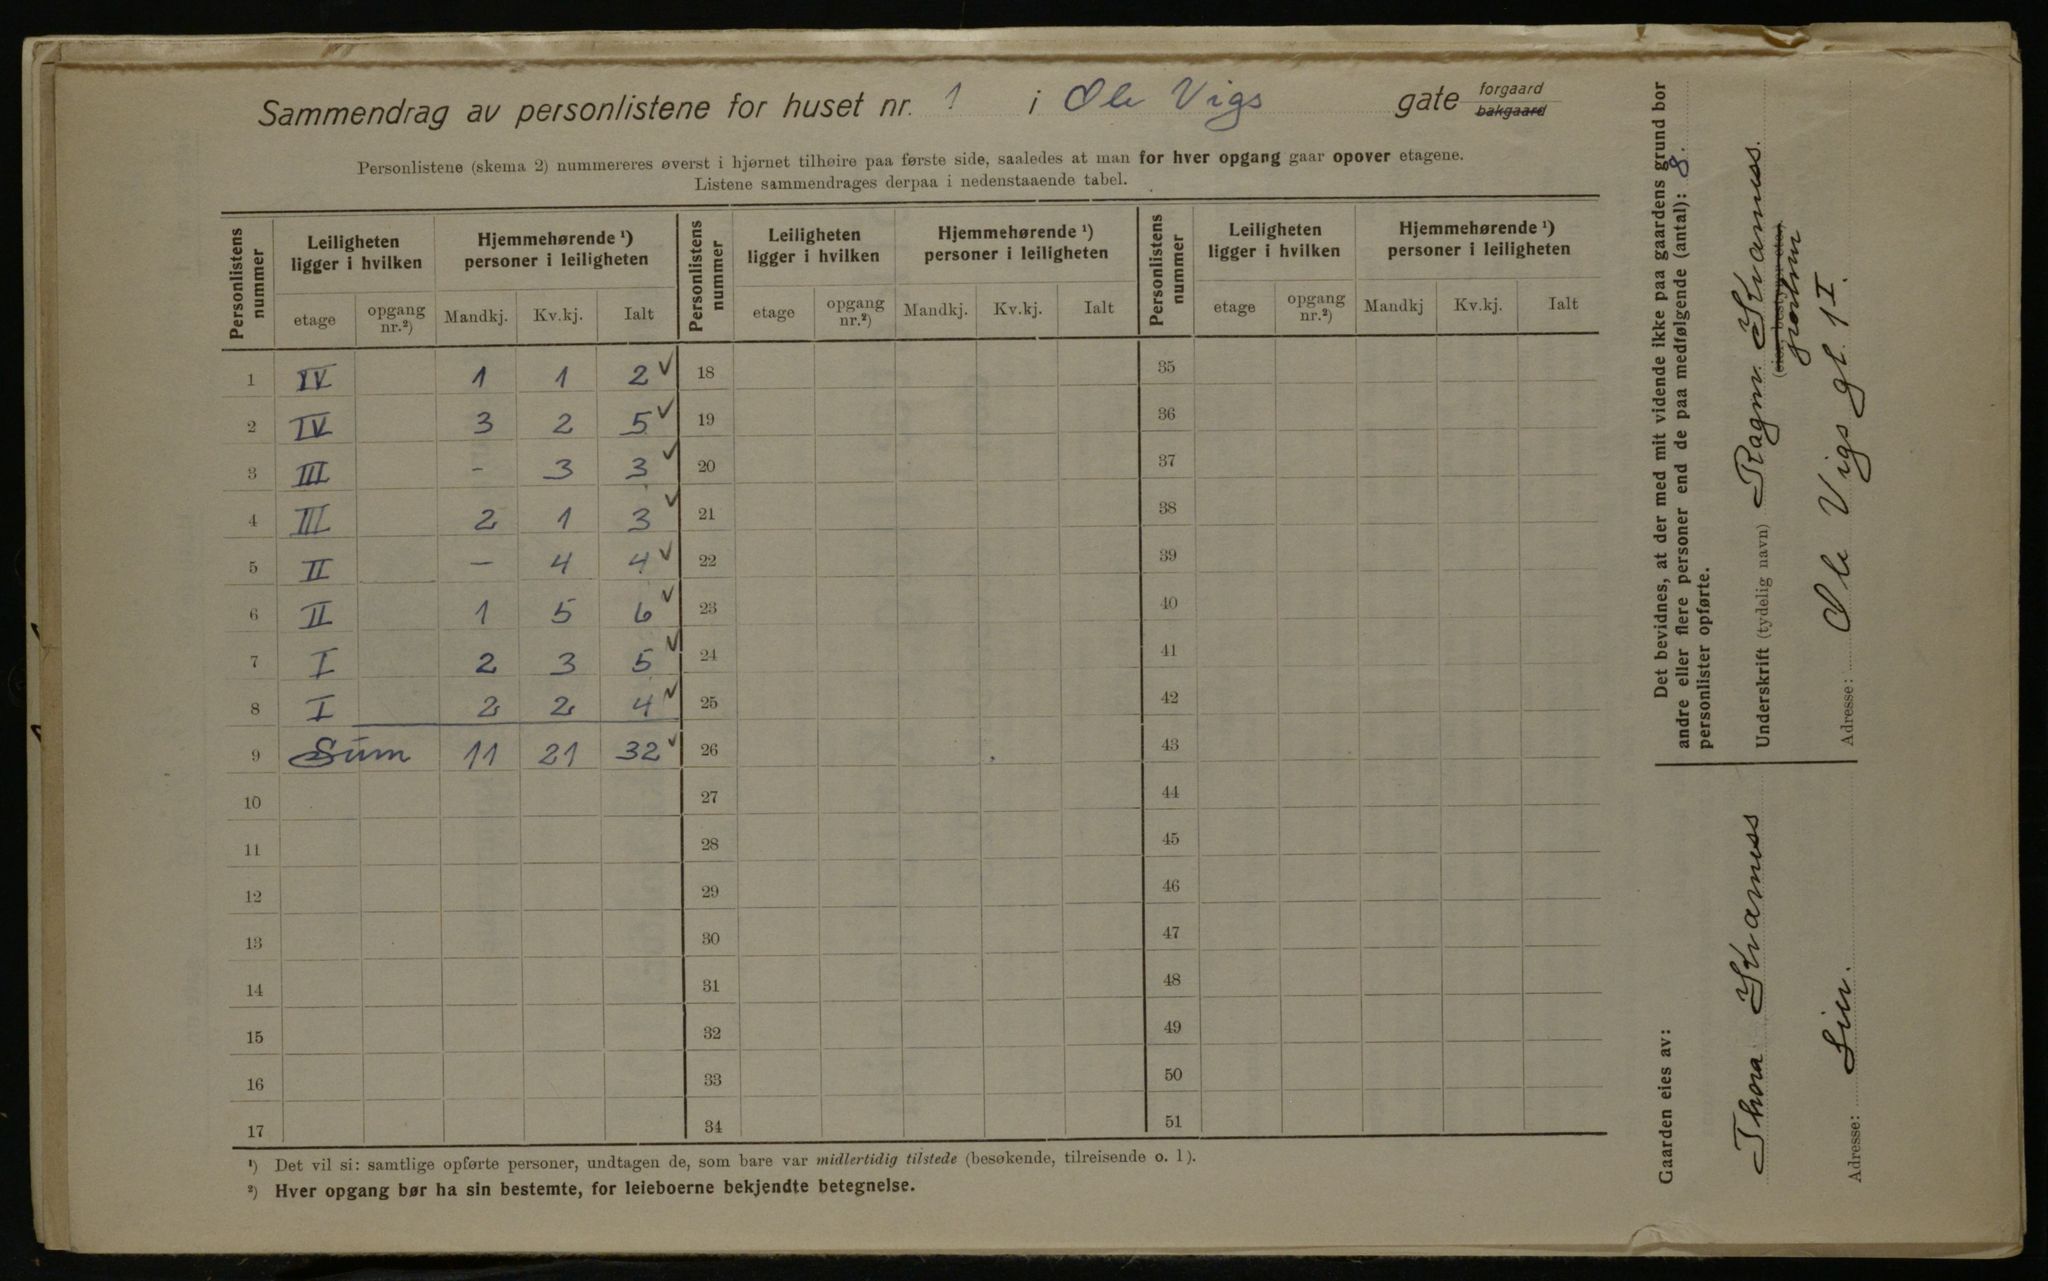 Sammendrag av personlistene for huset nr. 1 i Ole Vigs gate forgaard
bakgaard
Personlistene (skema 2) nummereres øverst i hjørnet tilhøire paa første side, saaledes at man for hver opgang gaar opover etagene.
Listene sammendrages derpaa i nedenstaaende tabel.
Personlistens nummer Leiligheten ligger i hvilken Hjemmehørende ¹) personer i leiligheten Personlistens nummer Leiligheten ligger i hvilken Hjemmehørende ¹) personer i leiligheten Personlistens nummer Leiligheten ligger i hvilken Hjemmehørende ¹) personer i leiligheten
etage opgang nr.²) Mandkj. Kv.kj. Ialt etage opgang nr.²) Mandkj. Kv.kj. Ialt etage opgang nr.²) Mandkj Kv.kj. Ialt
1 IV 1 1 2 ✓ 18 35
2 IV 3 2 5 ✓ 19 36
3 III - 3 3 ✓ 20 37
4 III 2 1 3 ✓ 21 38
5 II - 4 4 ✓ 22 39
6 II 1 5 6 ✓ 23 40
7 I 2 3 5 ✓ 24 41
8 I 2 2 4 ✓ 25 42
9 Sum 11 21 32 ✓ 26 43
10 27 44
11 28 45
12 29 46
13 30 47
14 31 48
15 32 49
16 33 50
17 34 51
¹) Det vil si: samtlige opførte personer, undtagen de, som bare var midlertidig tilstede (besøkende, tilreisende o. l).
²) Hver opgang bør ha sin bestemte, for leieboerne bekjendte betegnelse.
Det bevidnes, at der med mit vidende ikke paa gaardens grund bor
andre eller flere personer end de paa medfølgende (antal): 8.
personlister opførte.
Underskrift (tydelig navn) Ragnv.
Adresse: Ole Vigs gt. 1 I.
Gaarden eies av:
Thora
Adresse: